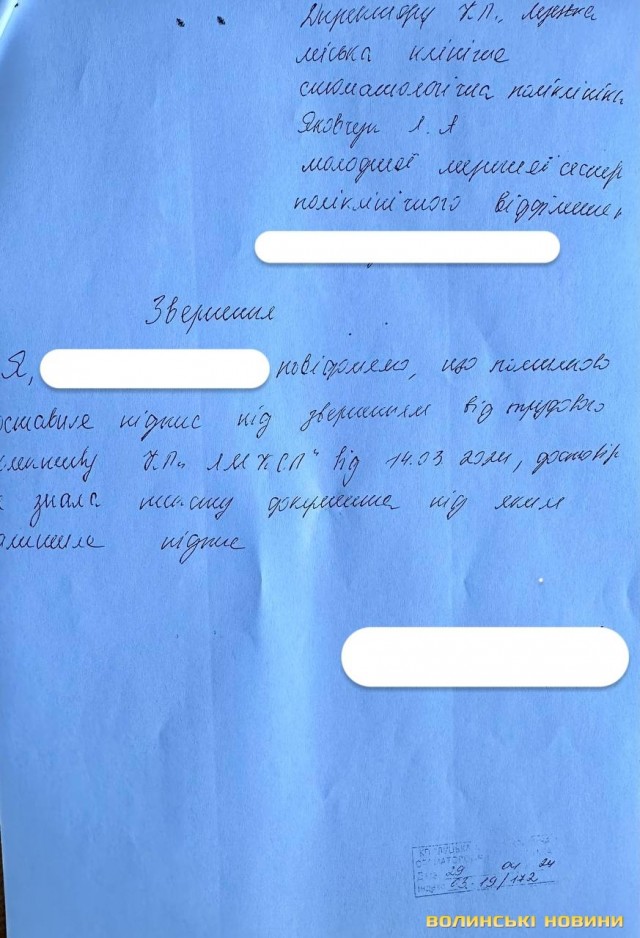 Директору К.П., Луцька
міська клінічна
стоматологічна поліклініка
Яковчук Л. А
молодшої медичної сестр
поліклінічного відділення
Звернення
Я, повідомляю, що помилково
оставила підпис під зверненням від трудового
К.П. "ЛМКСП" від 14.03 2024, достовір
знала документа під яким
алишила підпис
29 04 24
03-19/172
ВОЛИНСЬКІ НОВИНИ